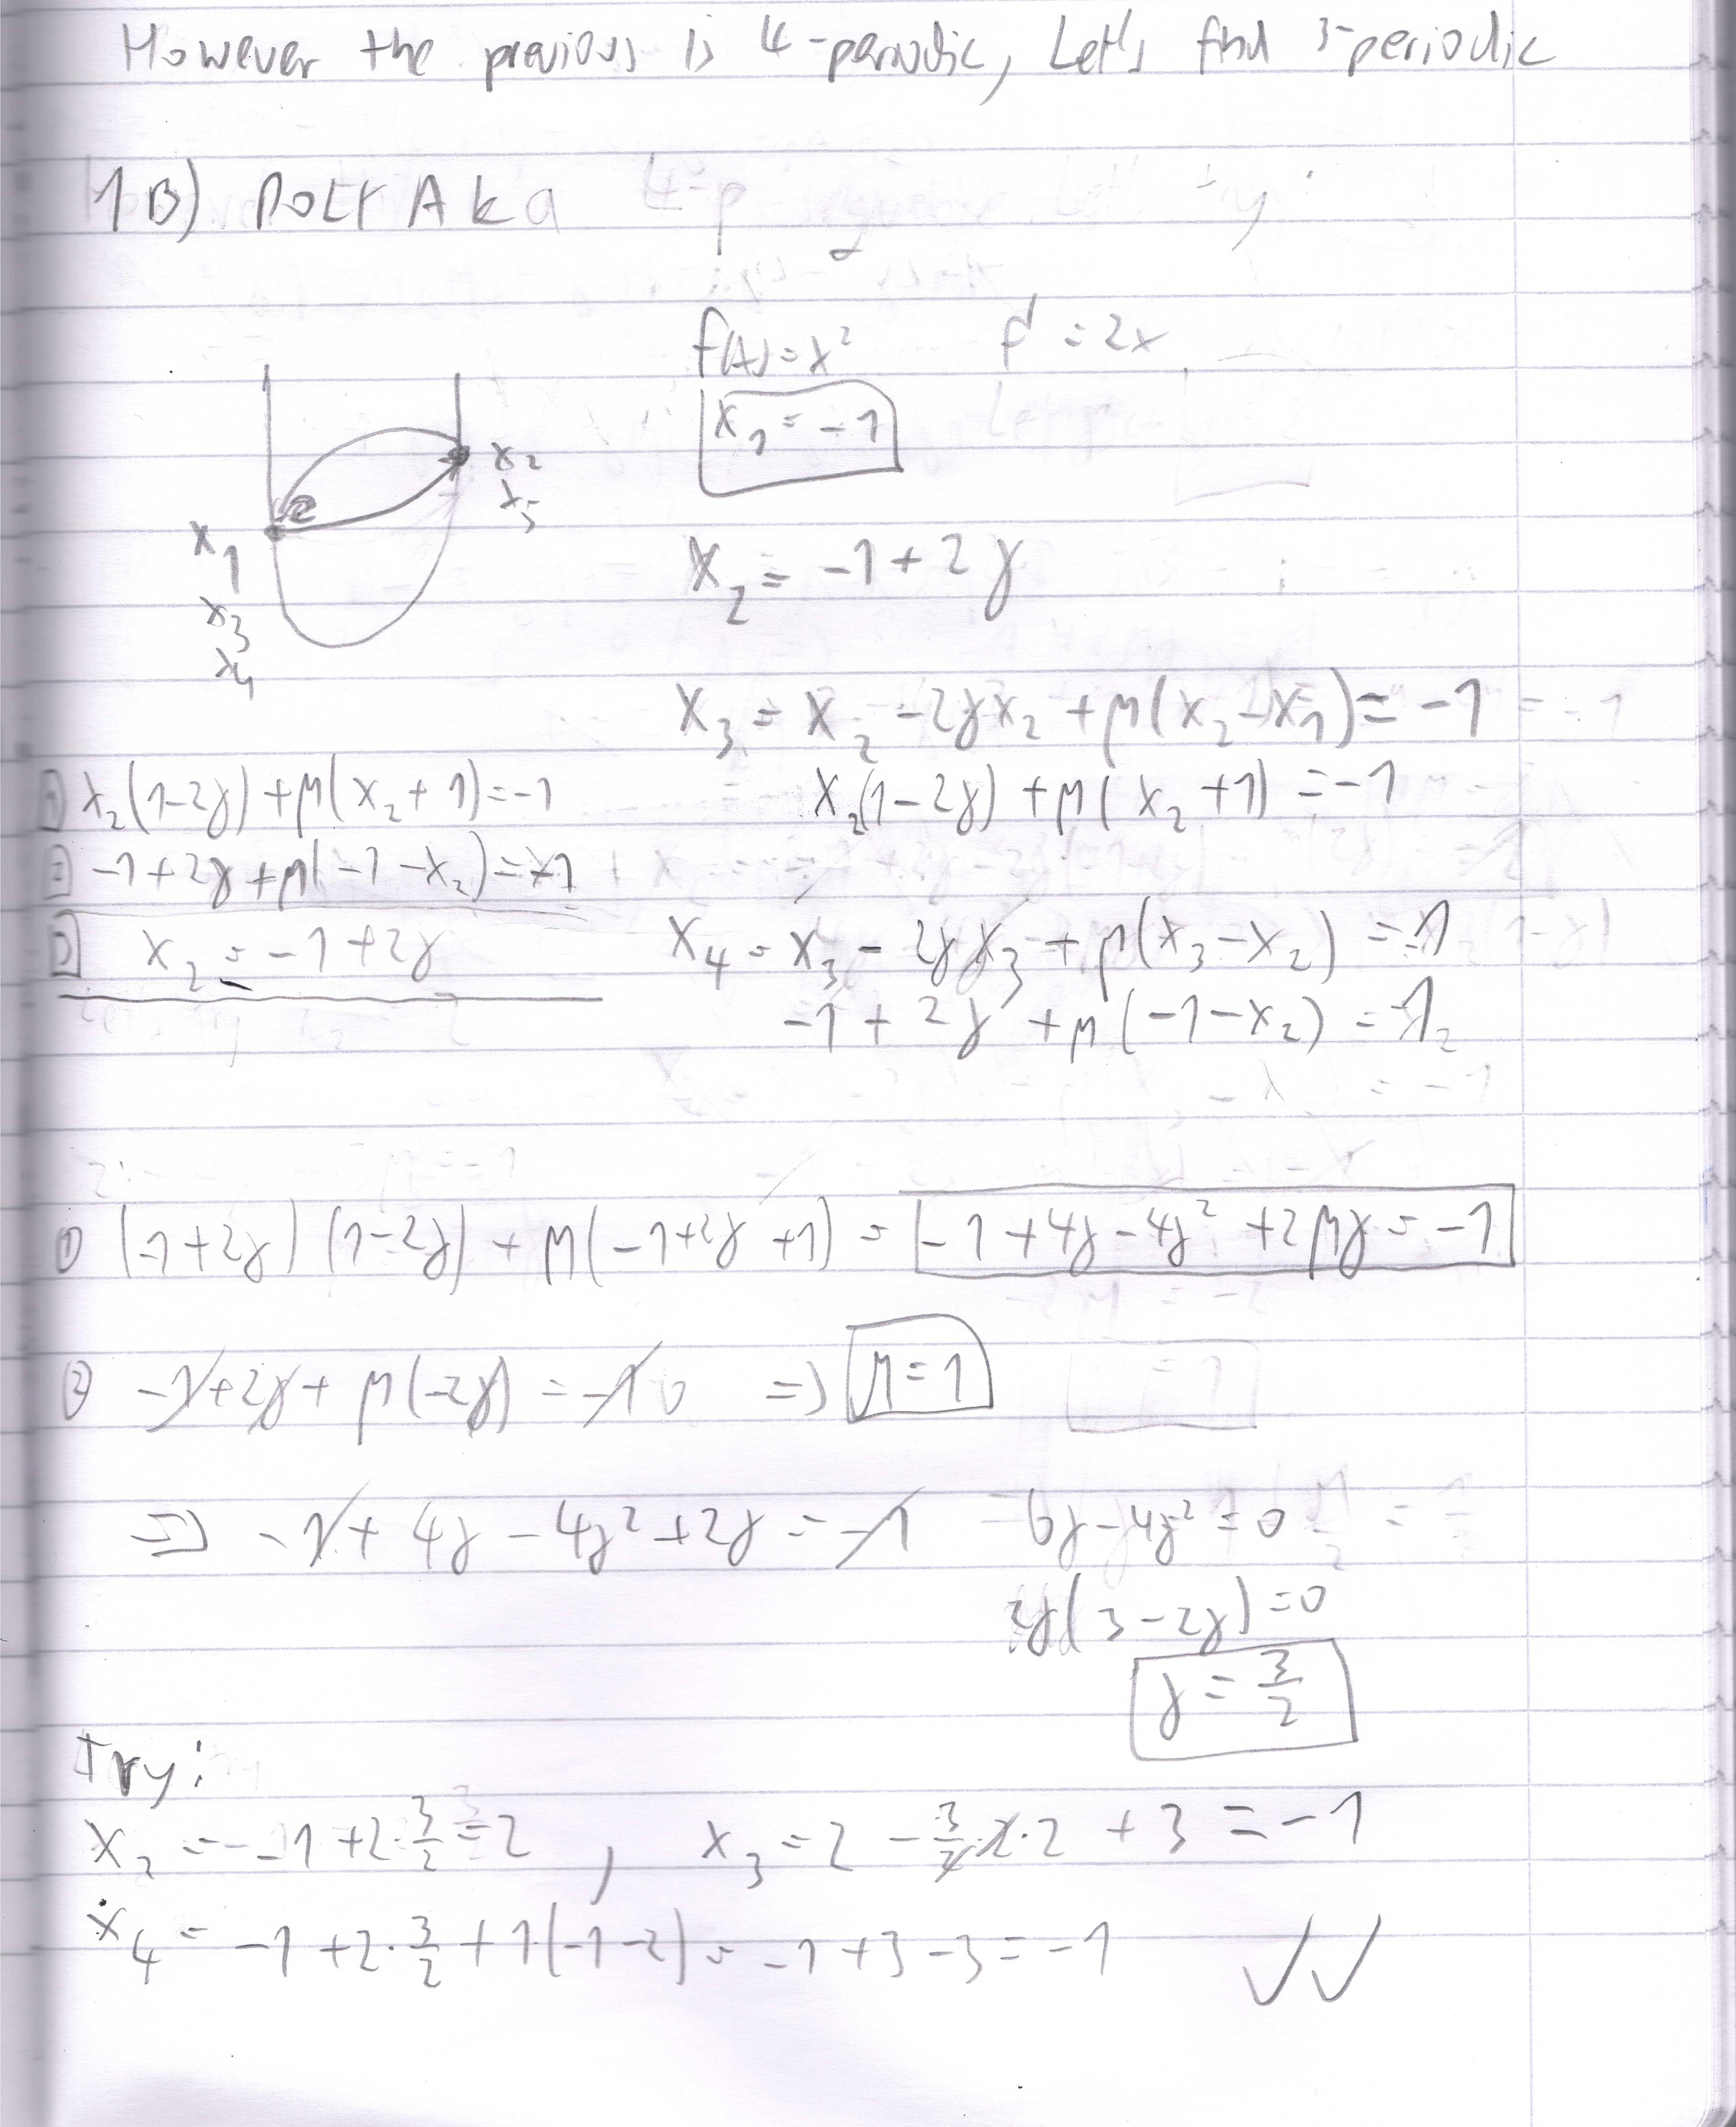 However the previous is 4-periodic, Let's find 3-periodic
1B) Polyak a
f(x)=x² f' = 2x
x₁ = -1
x₂
x₅
x₁
x₃
x₄
x₂ = -1 + 2γ
x₃ = x₂ - 2γx₂ + μ(x₂-x₁) = -1
x₂(1-2γ) + μ(x₂+1) = -1
x₂(1-2γ) + μ(x₂+1) = -1
-1+2γ+μ(-1-x₂) = -1
x₂ = -1+2γ
x₄ = x₃ - 2γx₃ + μ(x₃-x₂) = -1
-1 + 2γ + μ(-1-x₂) =
① (-1+2γ)(1-2γ) + μ(-1+2γ+1) = -1+4γ-4γ²+2μγ = -1
② -1+2γ+μ(-2γ) = -1 0 => μ=1
=> -1+4γ-4γ²+2γ = -1 6γ-4γ²=0
2γ(3-2γ)=0
γ = 3/2
Try:
x₂ = -1+2·3/2 = 2, x₃ = 2 - 3/2·2·2 + 3 = -1
x₄ = -1+2·3/2+1(-1-2) = -1+3-3 = -1 ✓✓